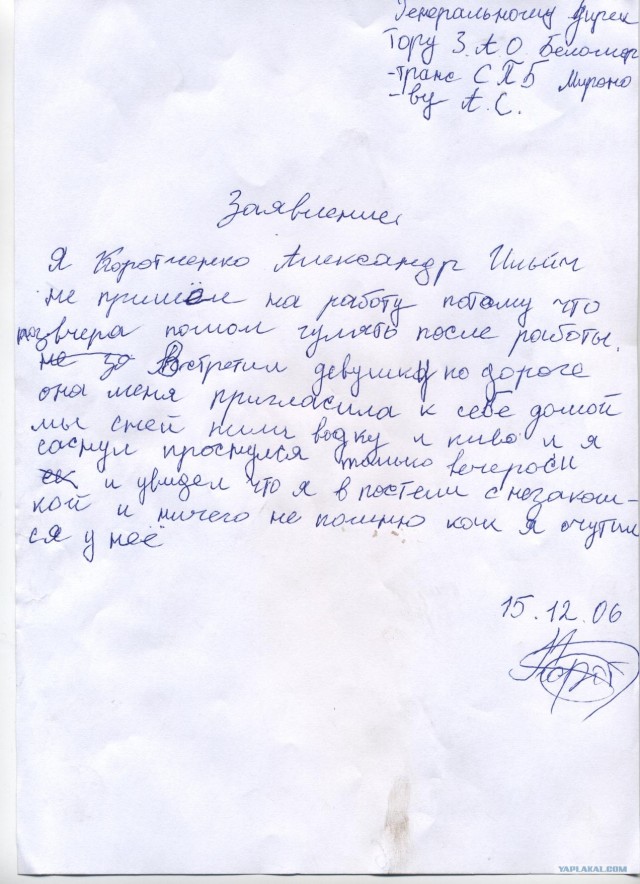 Генеральному Дирек
тору З.А.О Беломор
-транс СПБ Мироно
-ву А.С.
Заявление.
Я Коротченко Александр Ильич
не пришёл на работу потому что
позвчера пошол гулять после работы.
не за Встретил девушку по дороге
она меня пригласила к себе домой
мы сней пили водку и пиво и я
саснул проснулся только вечером
и увидел что я в постели с незаком-
кой и ничего не помню как я очутил
ся у неё
15.12.06
Корот
YAPLAKAL.COM